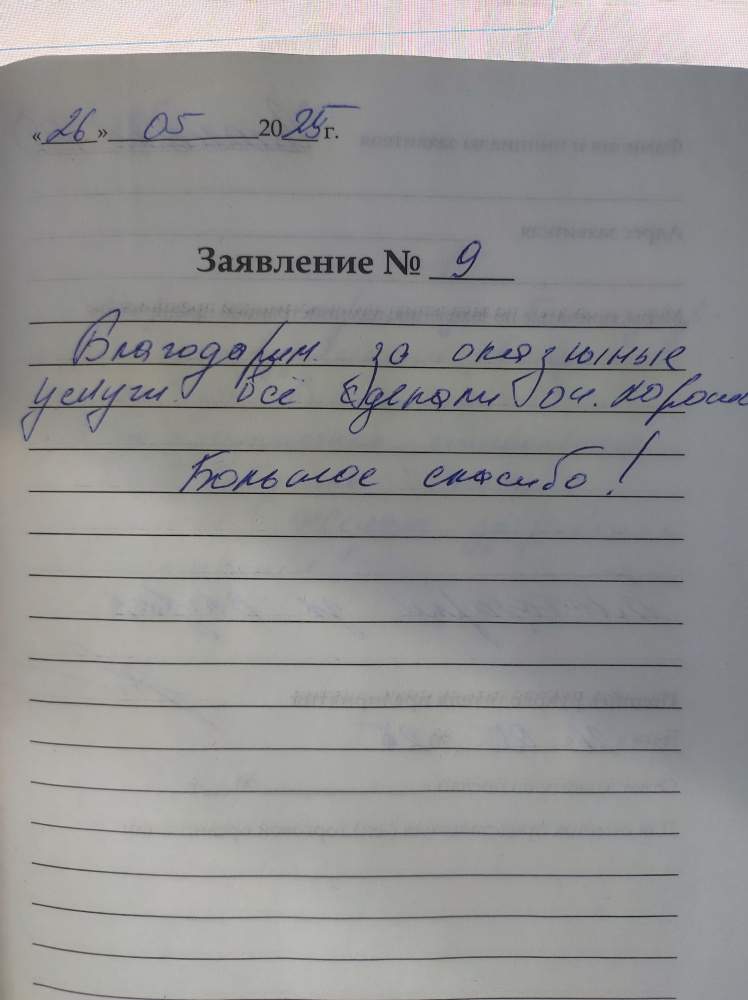 «26» 05 2025 г.
Заявление № 9
Благодарим за оказаные
услуги. Всё сделали оч. хорошо
Большое спасибо!